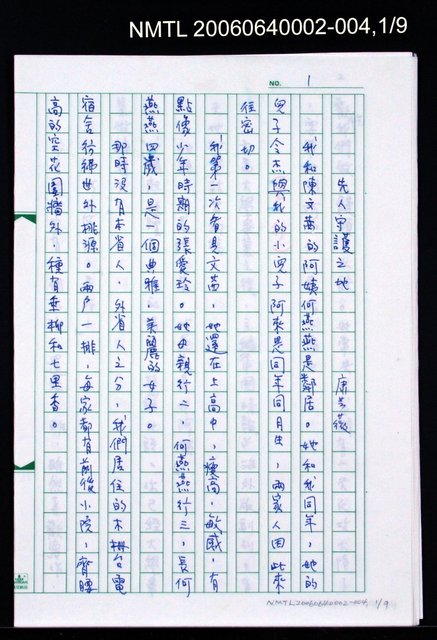 NMTL 20060640002-004,1/9
NO. 1
先人守護之地 康芸薇
我和陳文茜的阿姨何燕燕是鄰居。她和我同年，她的
兒子令杰與我的小兒子阿來是同年同月生，兩家人因此來
往密切。
我第一次看見文茜，她還在上高中，瘦高，敏感，有
點像少年時期的張愛玲。她母親行二，何燕燕行三，長何
燕燕四歲，是一個典雅，美麗的女子。
那時沒有本省人，外省人之分，我們居住的木柵台電
宿舍彷彿世外桃源。兩戶一排，每家都有前後小院，齊腰
高的空花圍牆外，種有垂柳和七里香。
NMTL20060640002-004, 1/9